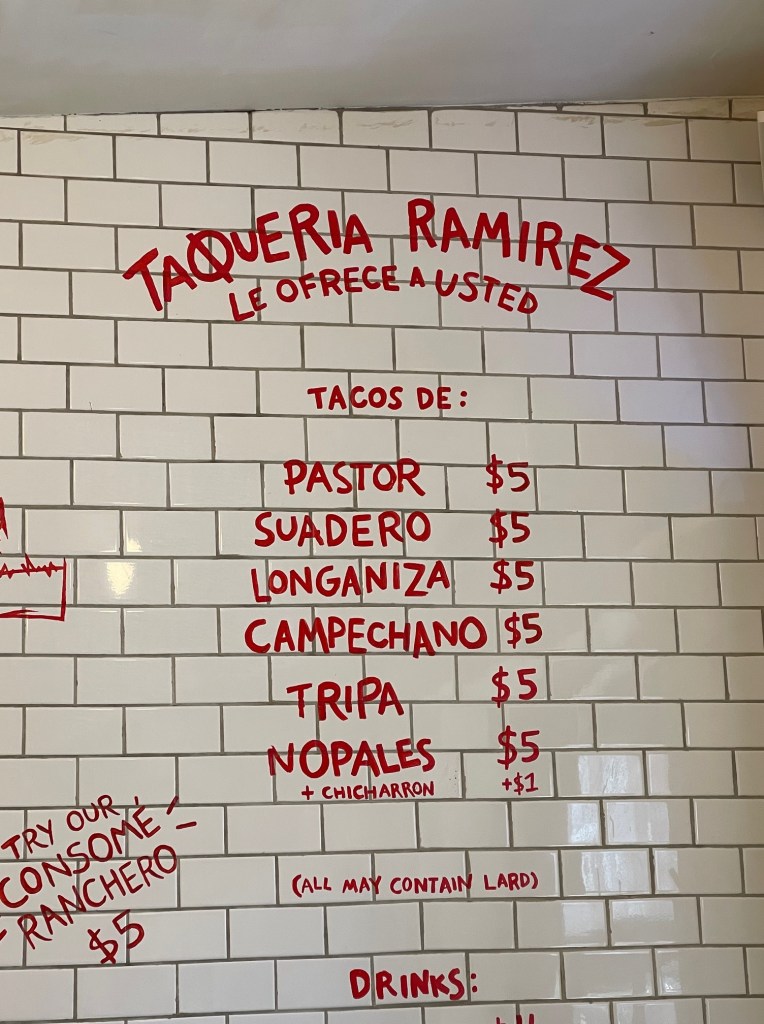 TAQUERIA RAMIREZ
LE OFRECE A USTED
TACOS DE:
PASTOR $5
SUADERO $5
LONGANIZA $5
CAMPECHANO $5
TRIPA $5
NOPALES $5
+ CHICHARRON +$1
TRY OUR
CONSOMÉ
RANCHERO
$5
(ALL MAY CONTAIN LARD)
DRINKS: